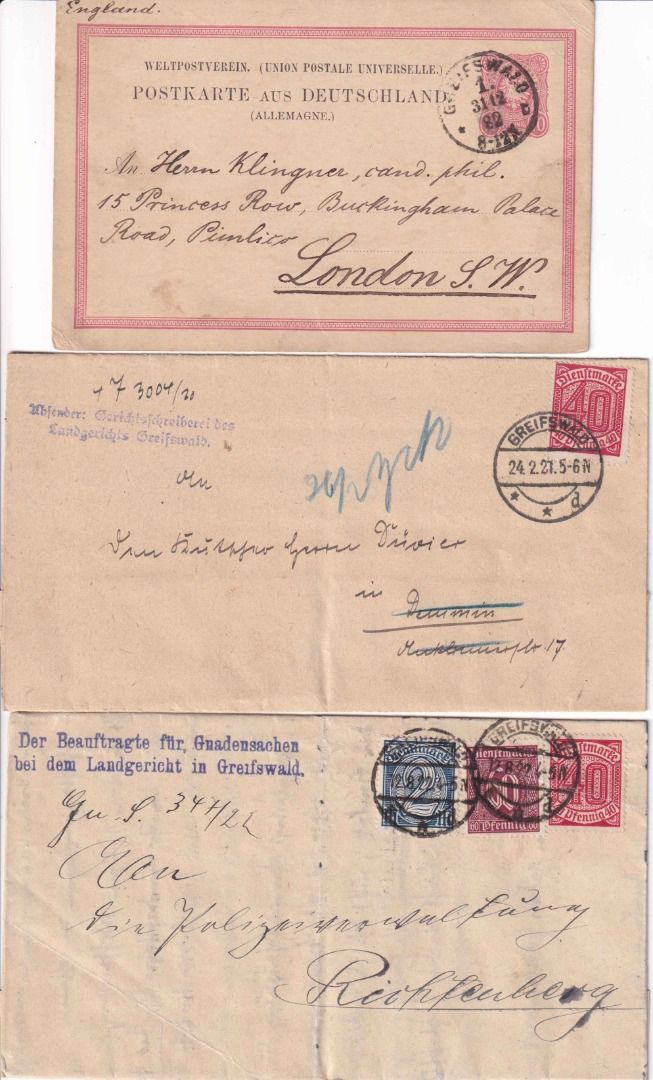 England.
WELTPOSTVEREIN. (UNION POSTALE UNIVERSELLE.)
POSTKARTE AUS DEUTSCHLAND
(ALLEMAGNE.)
GREIFSWALD
1.
31 12
82
8-12N
An Herrn Klingner, cand. phil.
15 Princess Row, Buckingham Palace
Road, Pimlico
London S. W.
7 3004/20
Absender: Gerichtsschreiberei des
Landgerichts Greifswald.
Dienstmarke
40
GREIFSWALD
24.2.21.5-6N
* * d
An
den Kutscher Herrn Düvier
in
Demmin
17
Der Beauftragte für Gnadensachen
bei dem Landgericht in Greifswald.
2
60 Pfennig 60
Dienstmarke
40
Pfennig 40
GREIFSWALD
Gn. S. 347/22
An
die Polizeiverwaltung
Richtenberg